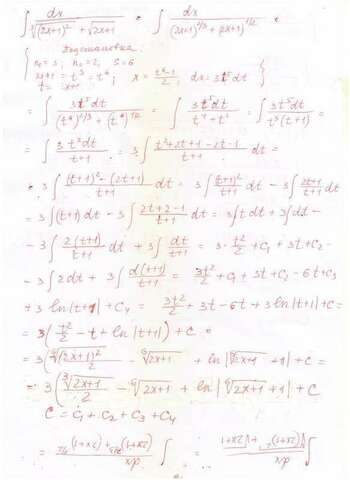 ∫ dx / (∛(2x+1)² + √(2x+1)) = ∫ dx / ((2x+1)^{2/3} + (2x+1)^{1/2}) =
Подстановка:
n₁ = 3; n₂ = 2, S = 6
2x+1 = t^S = t⁶; x = (t⁶-1)/2; dx = 3t⁵dt
= ∫ 3t⁵dt / ((t⁶)^{2/3} + (t⁶)^{1/2}) = ∫ 3t⁵dt / (t⁴+t³) = ∫ 3t⁵dt / (t³(t+1)) =
= ∫ 3t²dt / (t+1) = 3∫ (t²+2t+1-2t-1)/(t+1) dt =
= 3∫ ((t+1)² - (2t+1))/(t+1) dt = 3∫ (t+1)²/(t+1) dt - 3∫ (2t+1)/(t+1) dt
= 3∫(t+1)dt - 3∫ (2t+2-1)/(t+1) dt = 3∫t dt + 3∫dt -
- 3∫ 2(t+1)/(t+1) dt + 3∫ dt/(t+1) = 3·t²/2 + C₁ + 3t + C₂ -
- 3∫2dt + 3∫ d(t+1)/(t+1) = 3t²/2 + C₁ + 3t + C₂ - 6t + C₃
+ 3 ln|t+1| + C₄ = 3t²/2 + 3t - 6t + 3 ln|t+1| + C =
= 3(t²/2 - t + ln|t+1|) + C =
= 3(⁶√(2x+1)²/2 - ⁶√(2x+1) + ln|⁶√(2x+1) + 1|) + C =
= 3(∛(2x+1)/2 - ⁶√(2x+1) + ln|⁶√(2x+1) + 1|) + C
C = C₁ + C₂ + C₃ + C₄